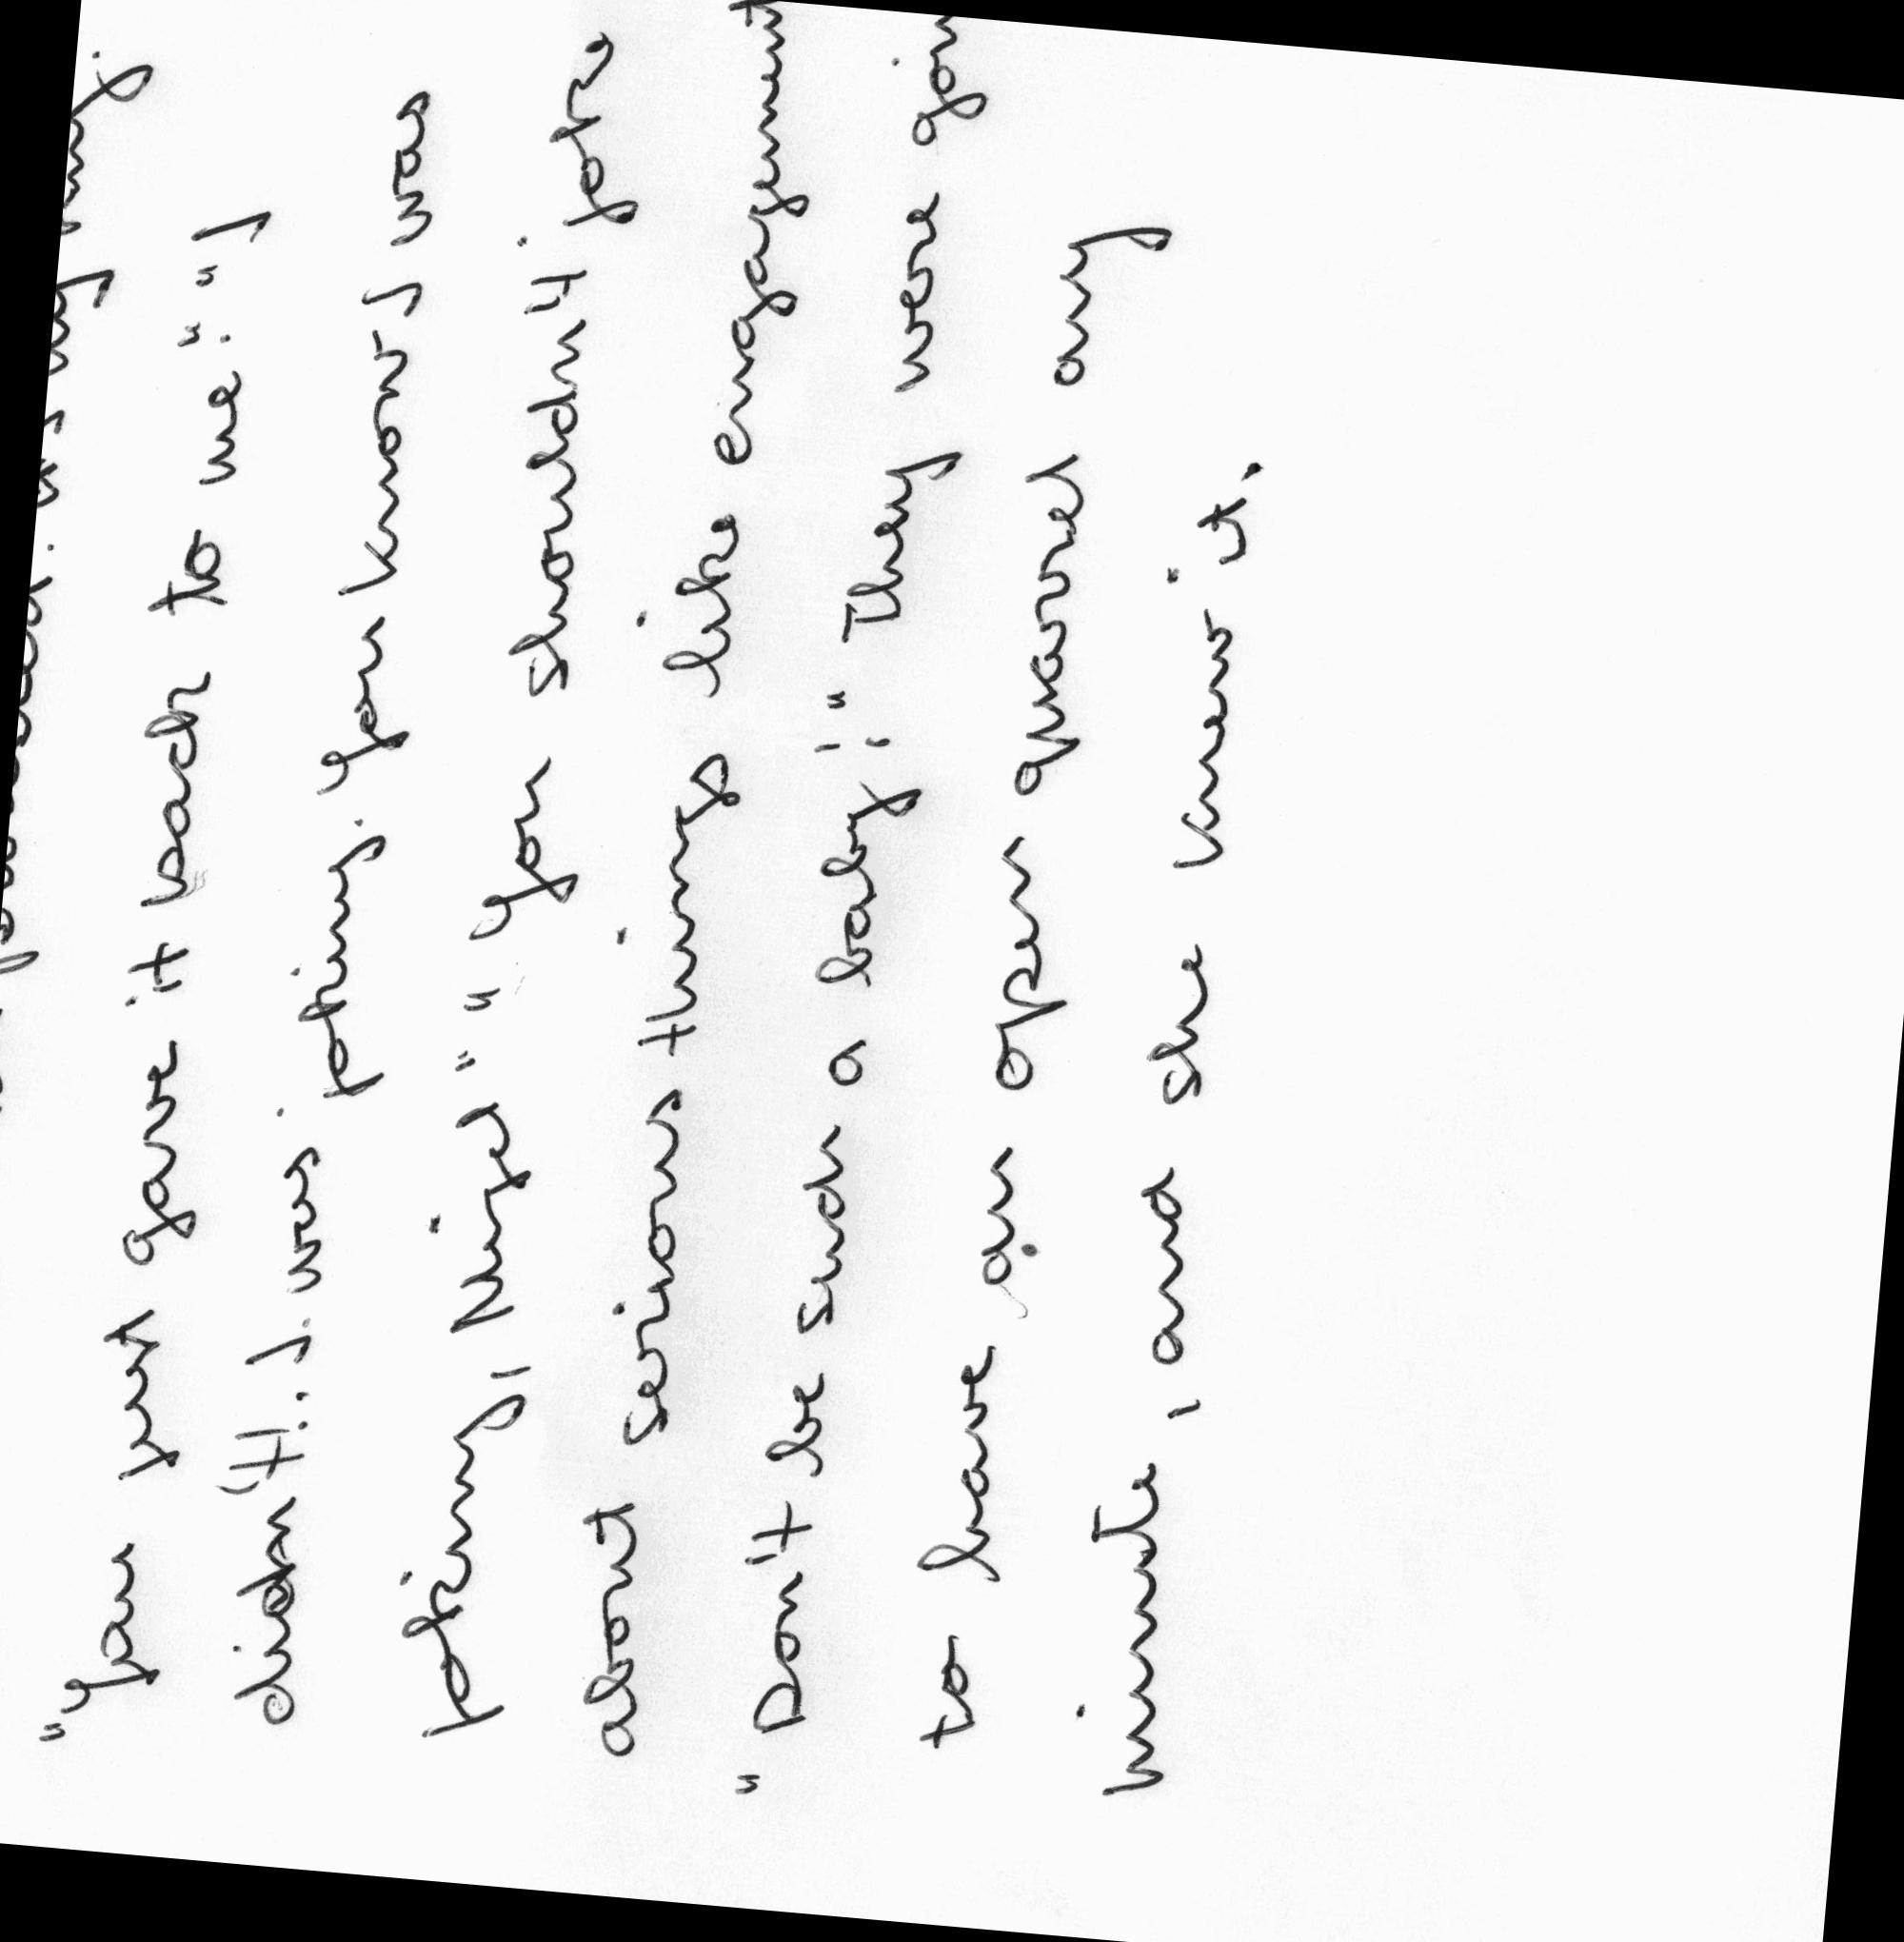 "You just gave it back to me." "I
didn't! I was joking. You know I was
joking, Nigel" "You shouldn't joke
about serious things like engagement
"Don't be such a baby!" They were goin
to have an open quarrel any
minute, and she knew it.